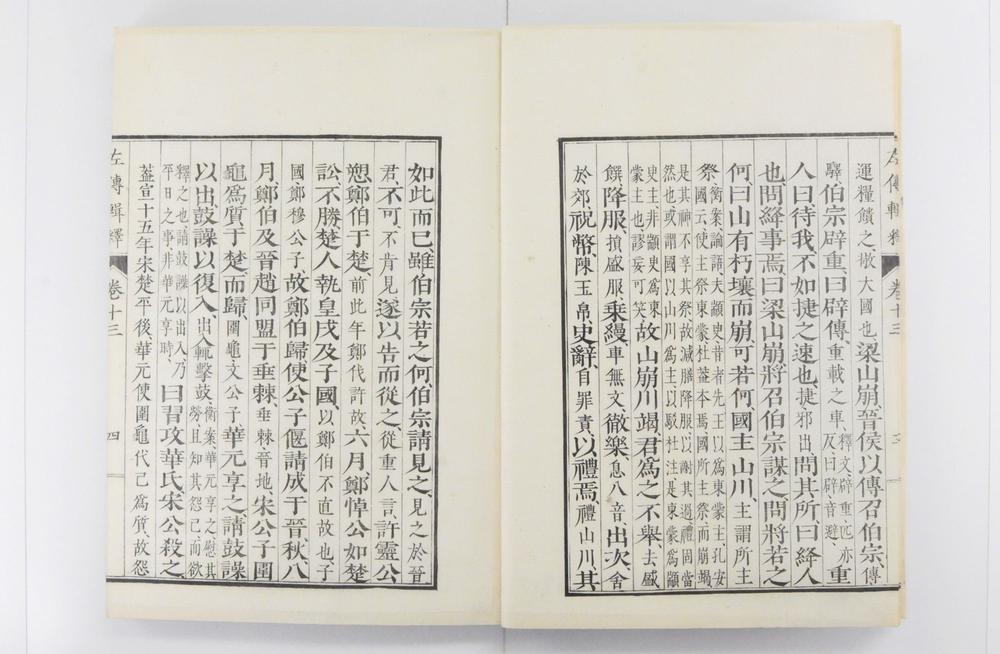 左傳輯釋
卷十三
運糧饋之、敝大國也、梁山崩、晉侯以傳召伯宗、傳
驛、伯宗辟重、曰辟傳、重載之車、釋文辟重、匹亦反、曰辟、音避、重
人曰、待我、不如捷之速也、捷、邪出、問其所、曰絳人
也、問絳事焉、曰梁山崩、將召伯宗謀之、問將若之
何、曰山有朽壤而崩、可若何、國主山川、主謂所主
祭、衡案、論語、夫顓臾昔者先王以爲東蒙主、孔安
國云、使主祭東蒙、杜蓋本焉、國所主祭、而崩竭、
是其神不享其祭、故減膳降服、以謝其過、禮固當
然也、或謂國以山川爲主、以駁杜注、是東蒙爲顓
臾主、非顓臾爲東
蒙主也、謬妄可笑、故山崩川竭、君爲之不舉、去盛
饌、降服、損盛服、乘縵、車無文、徹樂、息八音、出次、舍
於郊、祝幣、陳玉帛、史辭、自罪責、以禮焉、禮山川、其
如此而已、雖伯宗若之何、伯宗請見之、見之於晉
君、不可、不肯見、遂以告而從之、從重人言、許靈公
愬鄭伯于楚、前此年鄭伐許故、六月、鄭悼公如楚
訟、不勝、楚人執皇戌及子國、以鄭伯不直故也、子
國、鄭穆公子、故鄭伯歸、使公子偃請成于晉、秋八
月、鄭伯及晉趙同盟于垂棘、垂棘、晉地、宋公子圍
龜爲質于楚、而歸、圍龜、文公子、華元享之、請鼓譟
以出、鼓譟以復入、出入輒擊鼓、衡案、華元享之、慰其
勞、且知其怨己、而欲
釋之也、請鼓譟以出入、乃
平日之事、非華元享時、曰習攻華氏、宋公殺之、
蓋宣十五年、宋楚平後、華元使圍龜代己爲質、故怨
左傳輯釋
卷十三
四